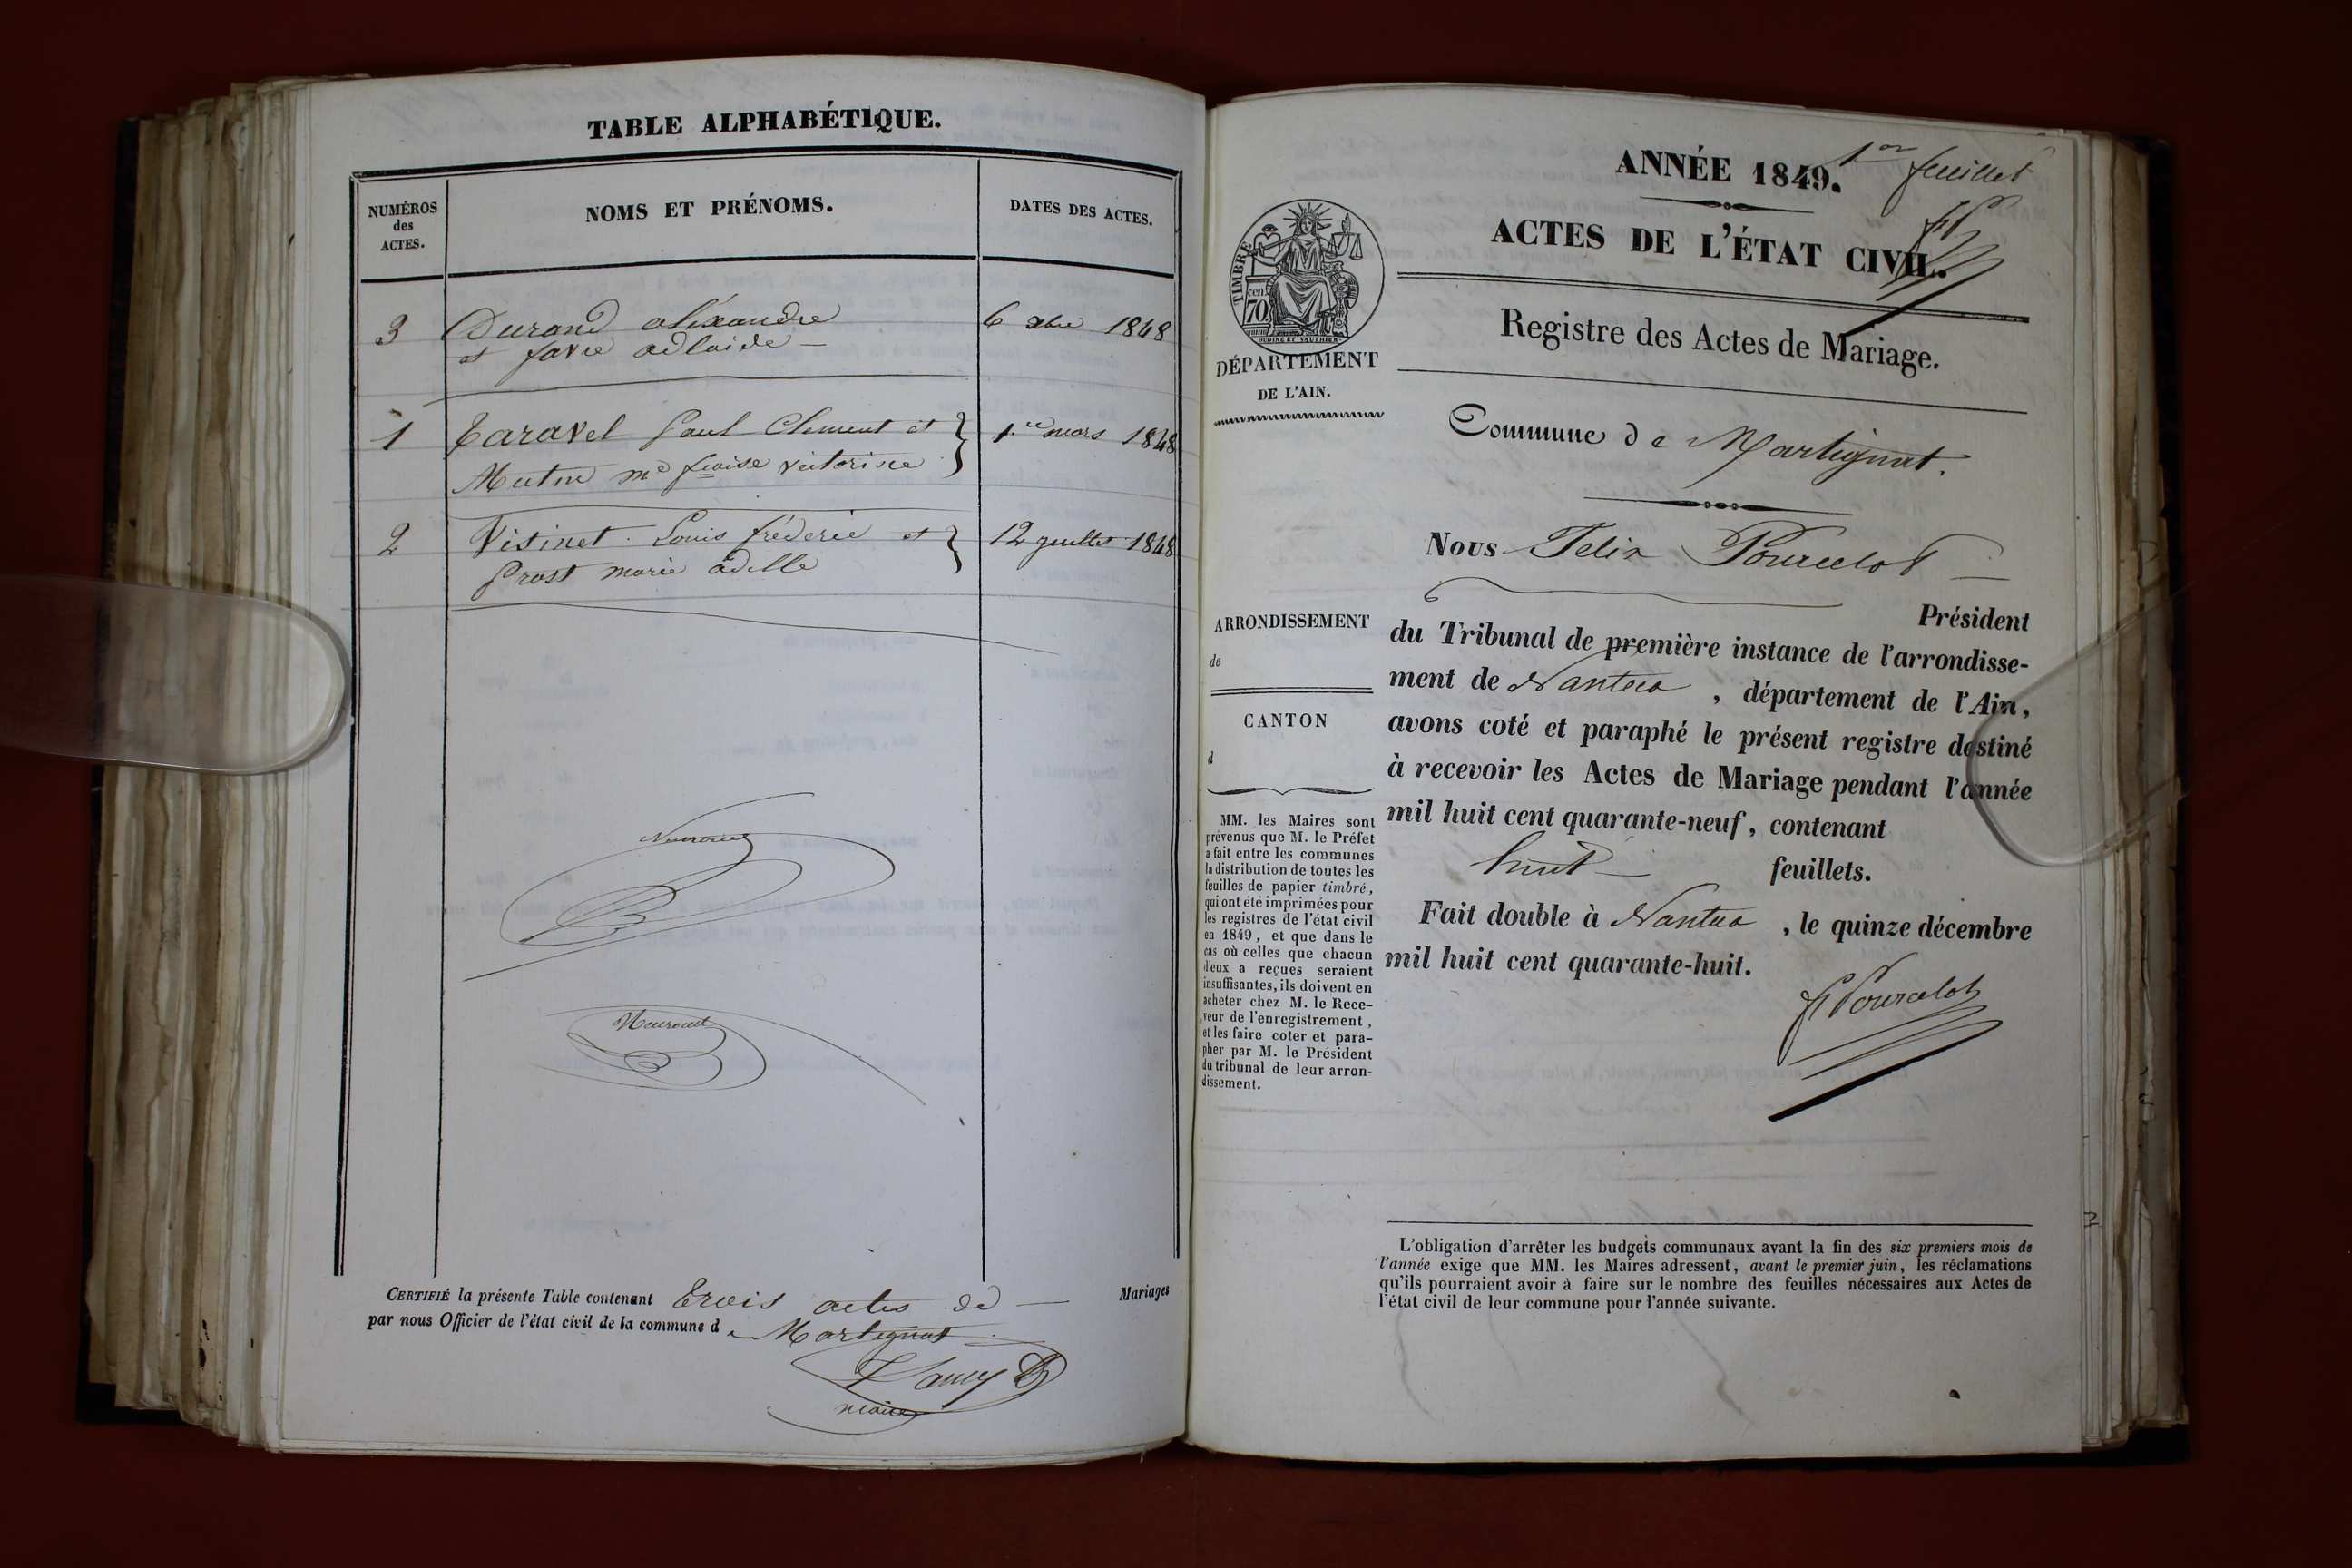 TABLE ALPHABÉTIQUE.
NUMÉROS
des
ACTES.
NOMS ET PRÉNOMS.
DATES DES ACTES.
3 Durand aléxandre 6 xbre 1848
et favre adlaide
1 Taravel Paul Clement et 1er mars 1848
me fçoise victorine
2 Visinet Louis fréderic et 12 juillet 1848
Prost marie adelle
CERTIFIÉ la présente Table contenant trois actes de Mariages
par nous Officier de l'état civil de la commune de Martignat
maire
1er feuillet
ANNÉE 1849.
ACTES DE L'ÉTAT CIVIL.
Registre des Actes de Mariage.
TIMBRE
cen.
70
DÉPARTEMENT
DE L'AIN.
Commune de Martignat.
Nous Felix Pourcelot
Président
ARRONDISSEMENT
de
CANTON
d
du Tribunal de première instance de l'arrondisse-
ment de Nantua, département de l'Ain,
avons coté et paraphé le présent registre destiné
à recevoir les Actes de Mariage pendant l'année
mil huit cent quarante-neuf, contenant
huit feuillets.
Fait double à Nantua, le quinze décembre
mil huit cent quarante-huit.
F Pourcelot
MM. les Maires sont
prévenus que M. le Préfet
a fait entre les communes
la distribution de toutes les
feuilles de papier timbré,
qui ont été imprimées pour
les registres de l'état civil
en 1849, et que dans le
cas où celles que chacun
d'eux a reçues seraient
insuffisantes, ils doivent en
acheter chez M. le Rece-
veur de l'enregistrement,
et les faire coter et para-
pher par M. le Président
du tribunal de leur arron-
dissement.
L'obligation d'arrêter les budgets communaux avant la fin des six premiers mois de
l'année exige que MM. les Maires adressent, avant le premier juin, les réclamations
qu'ils pourraient avoir à faire sur le nombre des feuilles nécessaires aux Actes de
l'état civil de leur commune pour l'année suivante.